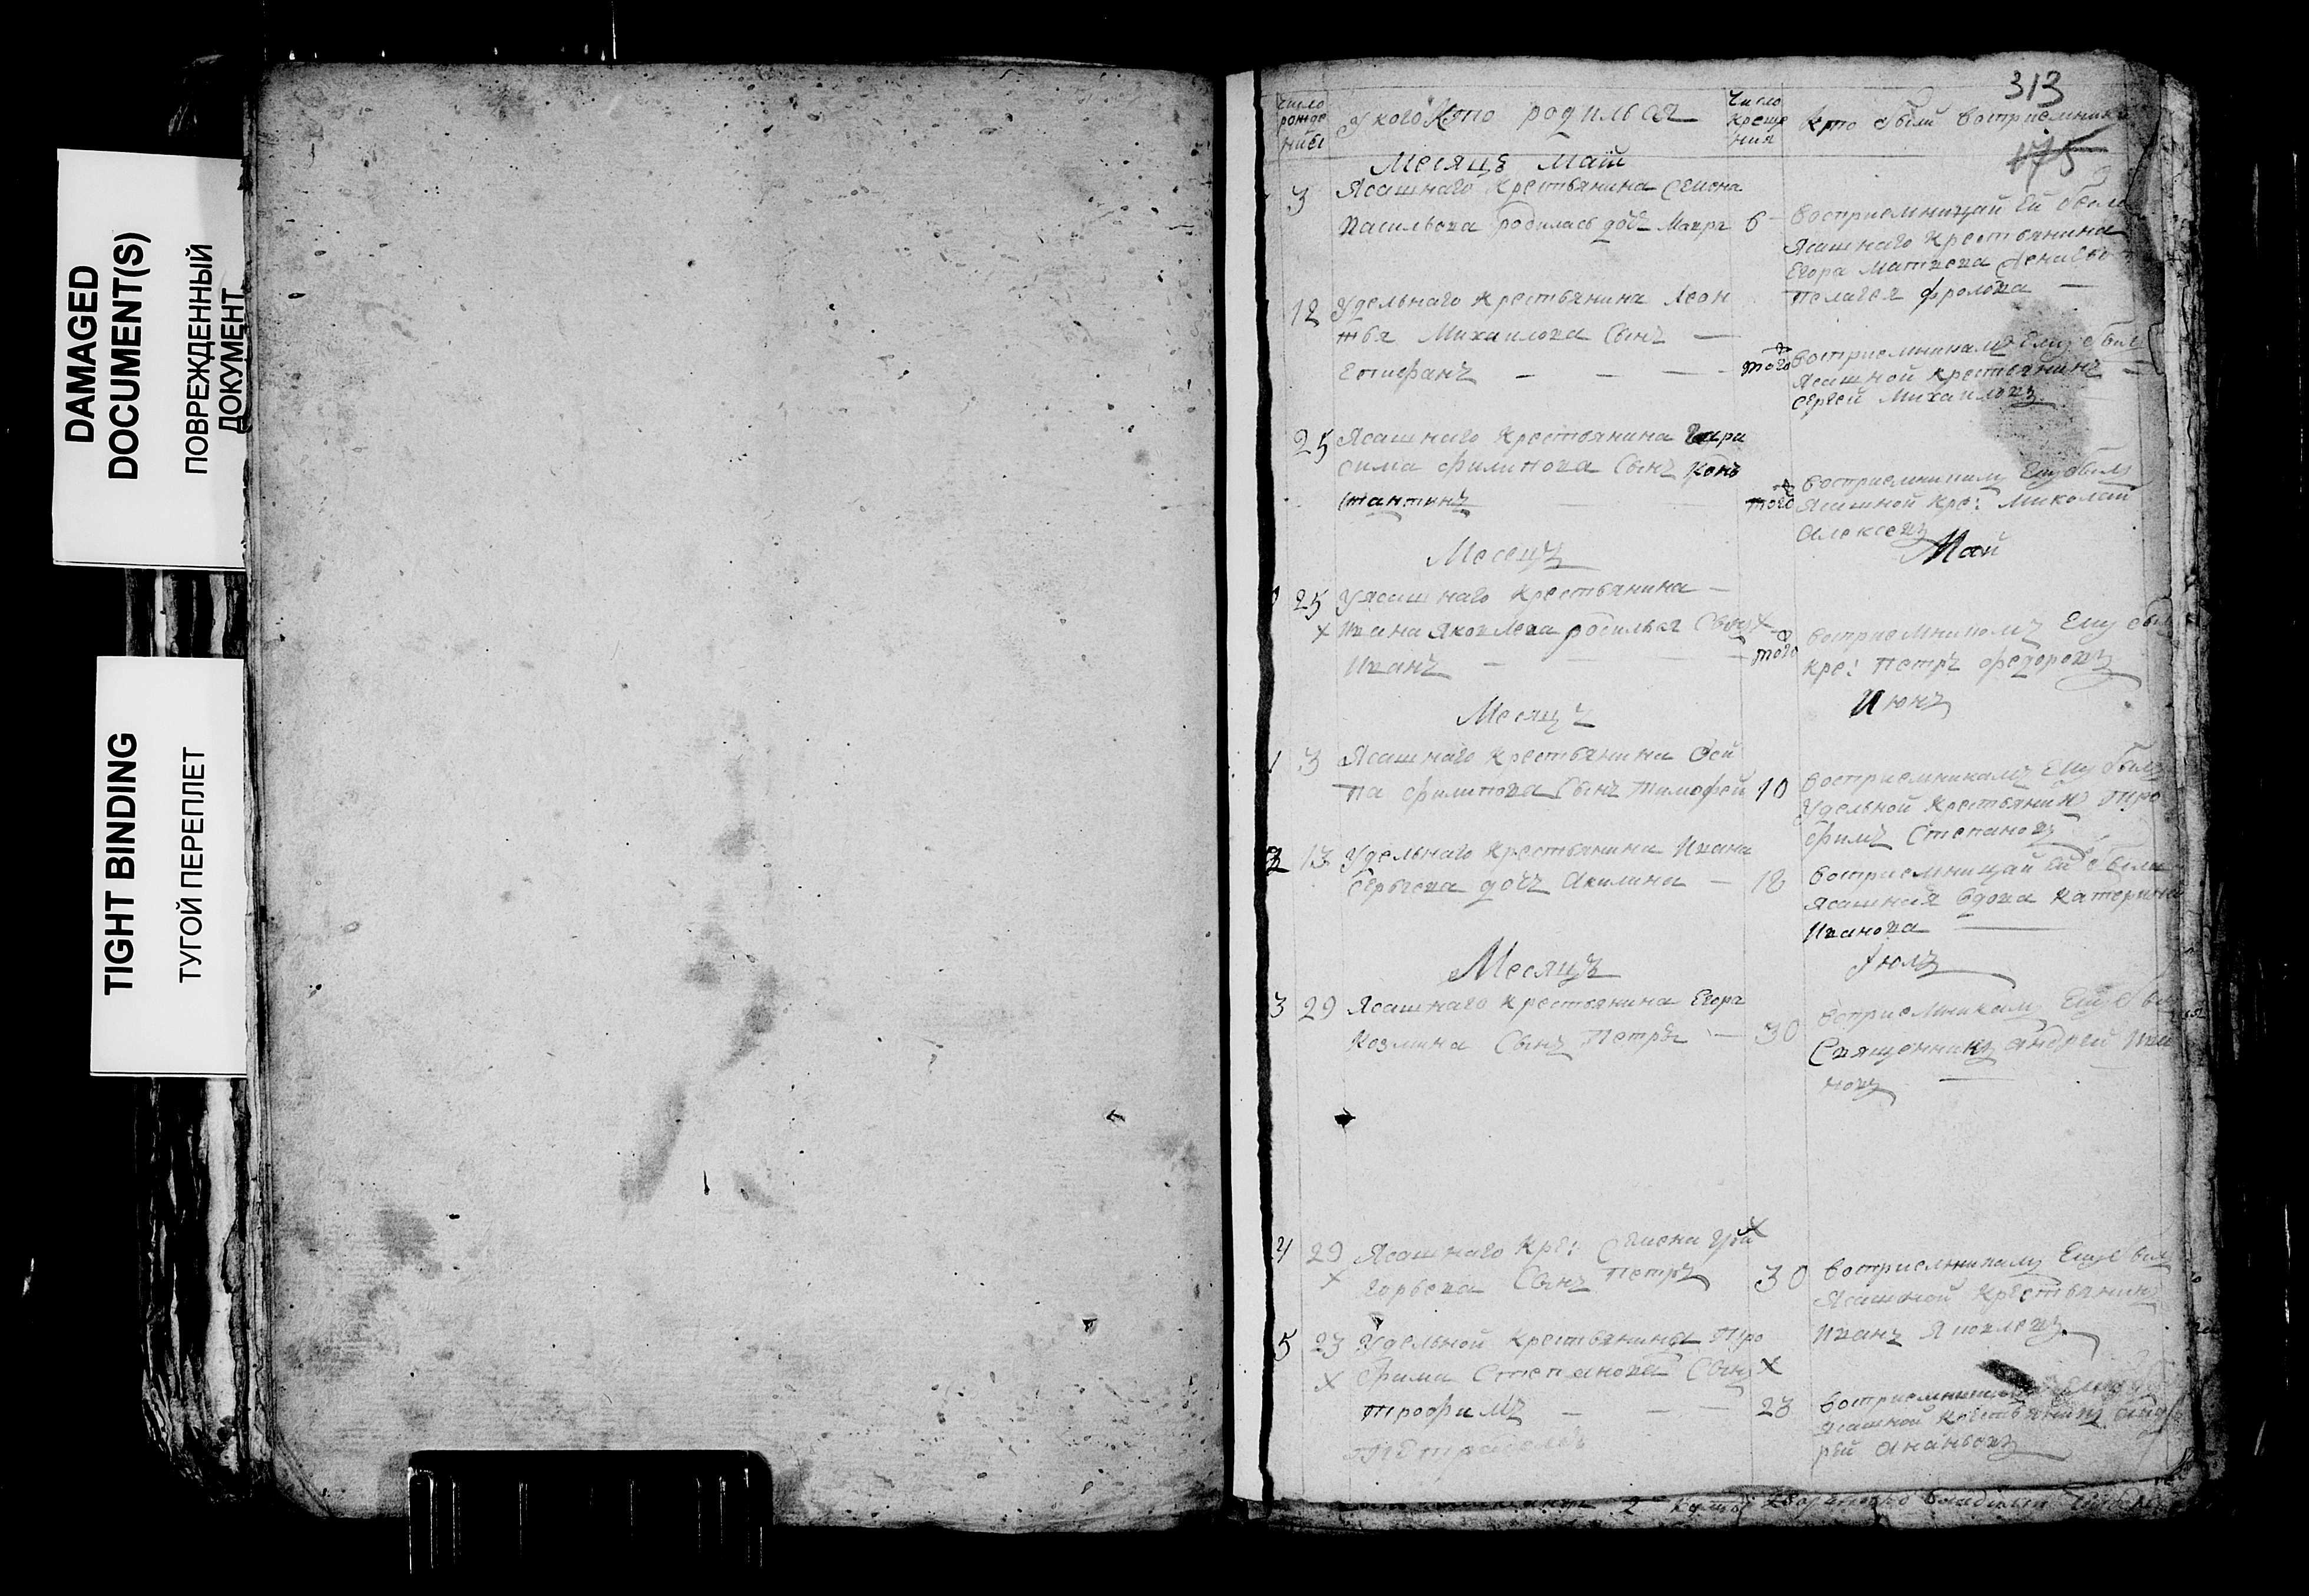 DAMAGED
DOCUMENT(S)
ПОВРЕЖДЕННЫЙ
ДОКУМЕНТ
TIGHT BINDING
ТУГОЙ ПЕРЕПЛЕТ
313
175
число рожде ния
У кого Кто родилься
Число креще ния
Кто были восприемники
Месяцъ Маiй
3 Ясашнаго крестьянина Семена
Васильева родилась дочь 6
восприемницай Ей была
Ясашнаго крестьянина
Егора Матвева жена
Пелагея Фролова
12 Удельнаго крестьянина Леон
тья Михаилова Сынъ
Епифанъ того
восприемникамъ Ему былъ
Ясашной крестьянинъ
Сергей Михаиловъ
25 Ясашнаго крестьянина Гера
сима Филипова Сынъ Конъ
стантинъ того
восприемникамъ Ему былъ
Ясашной кре: Миколай
Алексеевъ
Месецъ Май
25 У ясашнаго крестьянина
Ивана Яковлева родилься Сынъ
Иванъ того
восприемникомъ Ему был
кре: Петръ Федоровъ
Месяцъ Июнъ
1 3 Ясашнаго крестьянина Оси
па Филипова Сынъ Тимофей 10
восприемникамъ Ему былъ
Удельной крестьянинъ Тро
фимъ Степановъ
2 13 Удельнаго крестьянина Ивана
Сергеева дочь Акилина 18
восприемницай Ей была
Ясашная вдова Катерина
Иванова
Месяцъ Июлъ
3 29 Ясашнаго крестьянина Егора
Козмина Сынъ Петръ 30
восприемникамъ Ему был
Священникъ Андрей Ива
новъ
4 29 Ясашнаго Кре: Семена Гри
горьева Сынъ Петръ 30
восприемникамъ Ему был
Ясашной крестьянинъ
Иванъ Яковлевъ
5 23 Удельной крестьянина Тро
фима Степанова Сынъ
Трофимъ 23
восприемникамъ Ему
Ясашной крестьянинъ Анд
рей Ананьевъ